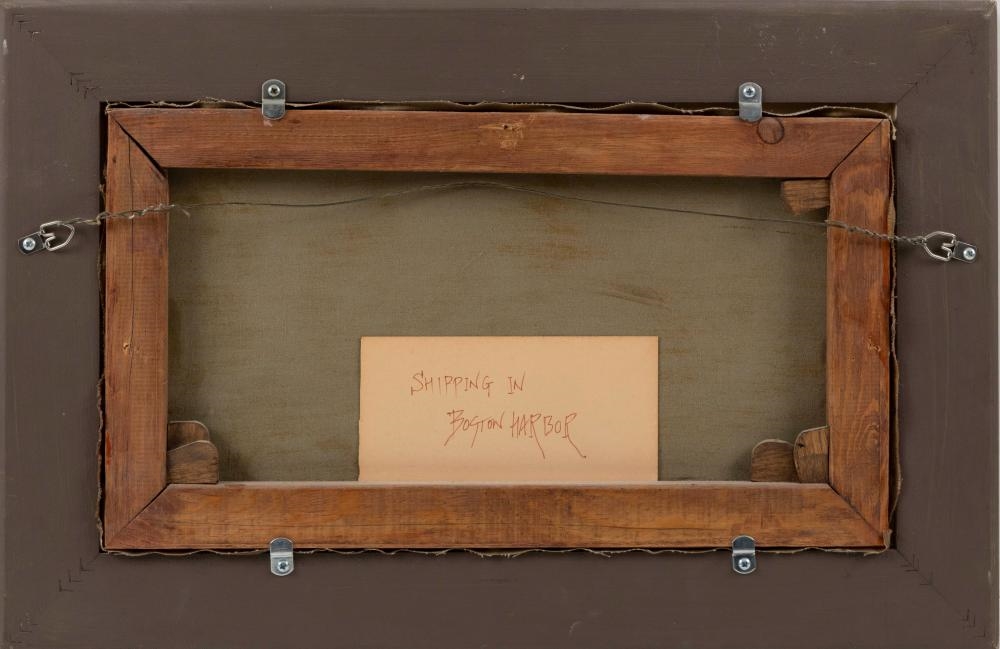 SHIPPING IN
BOSTON HARBOR